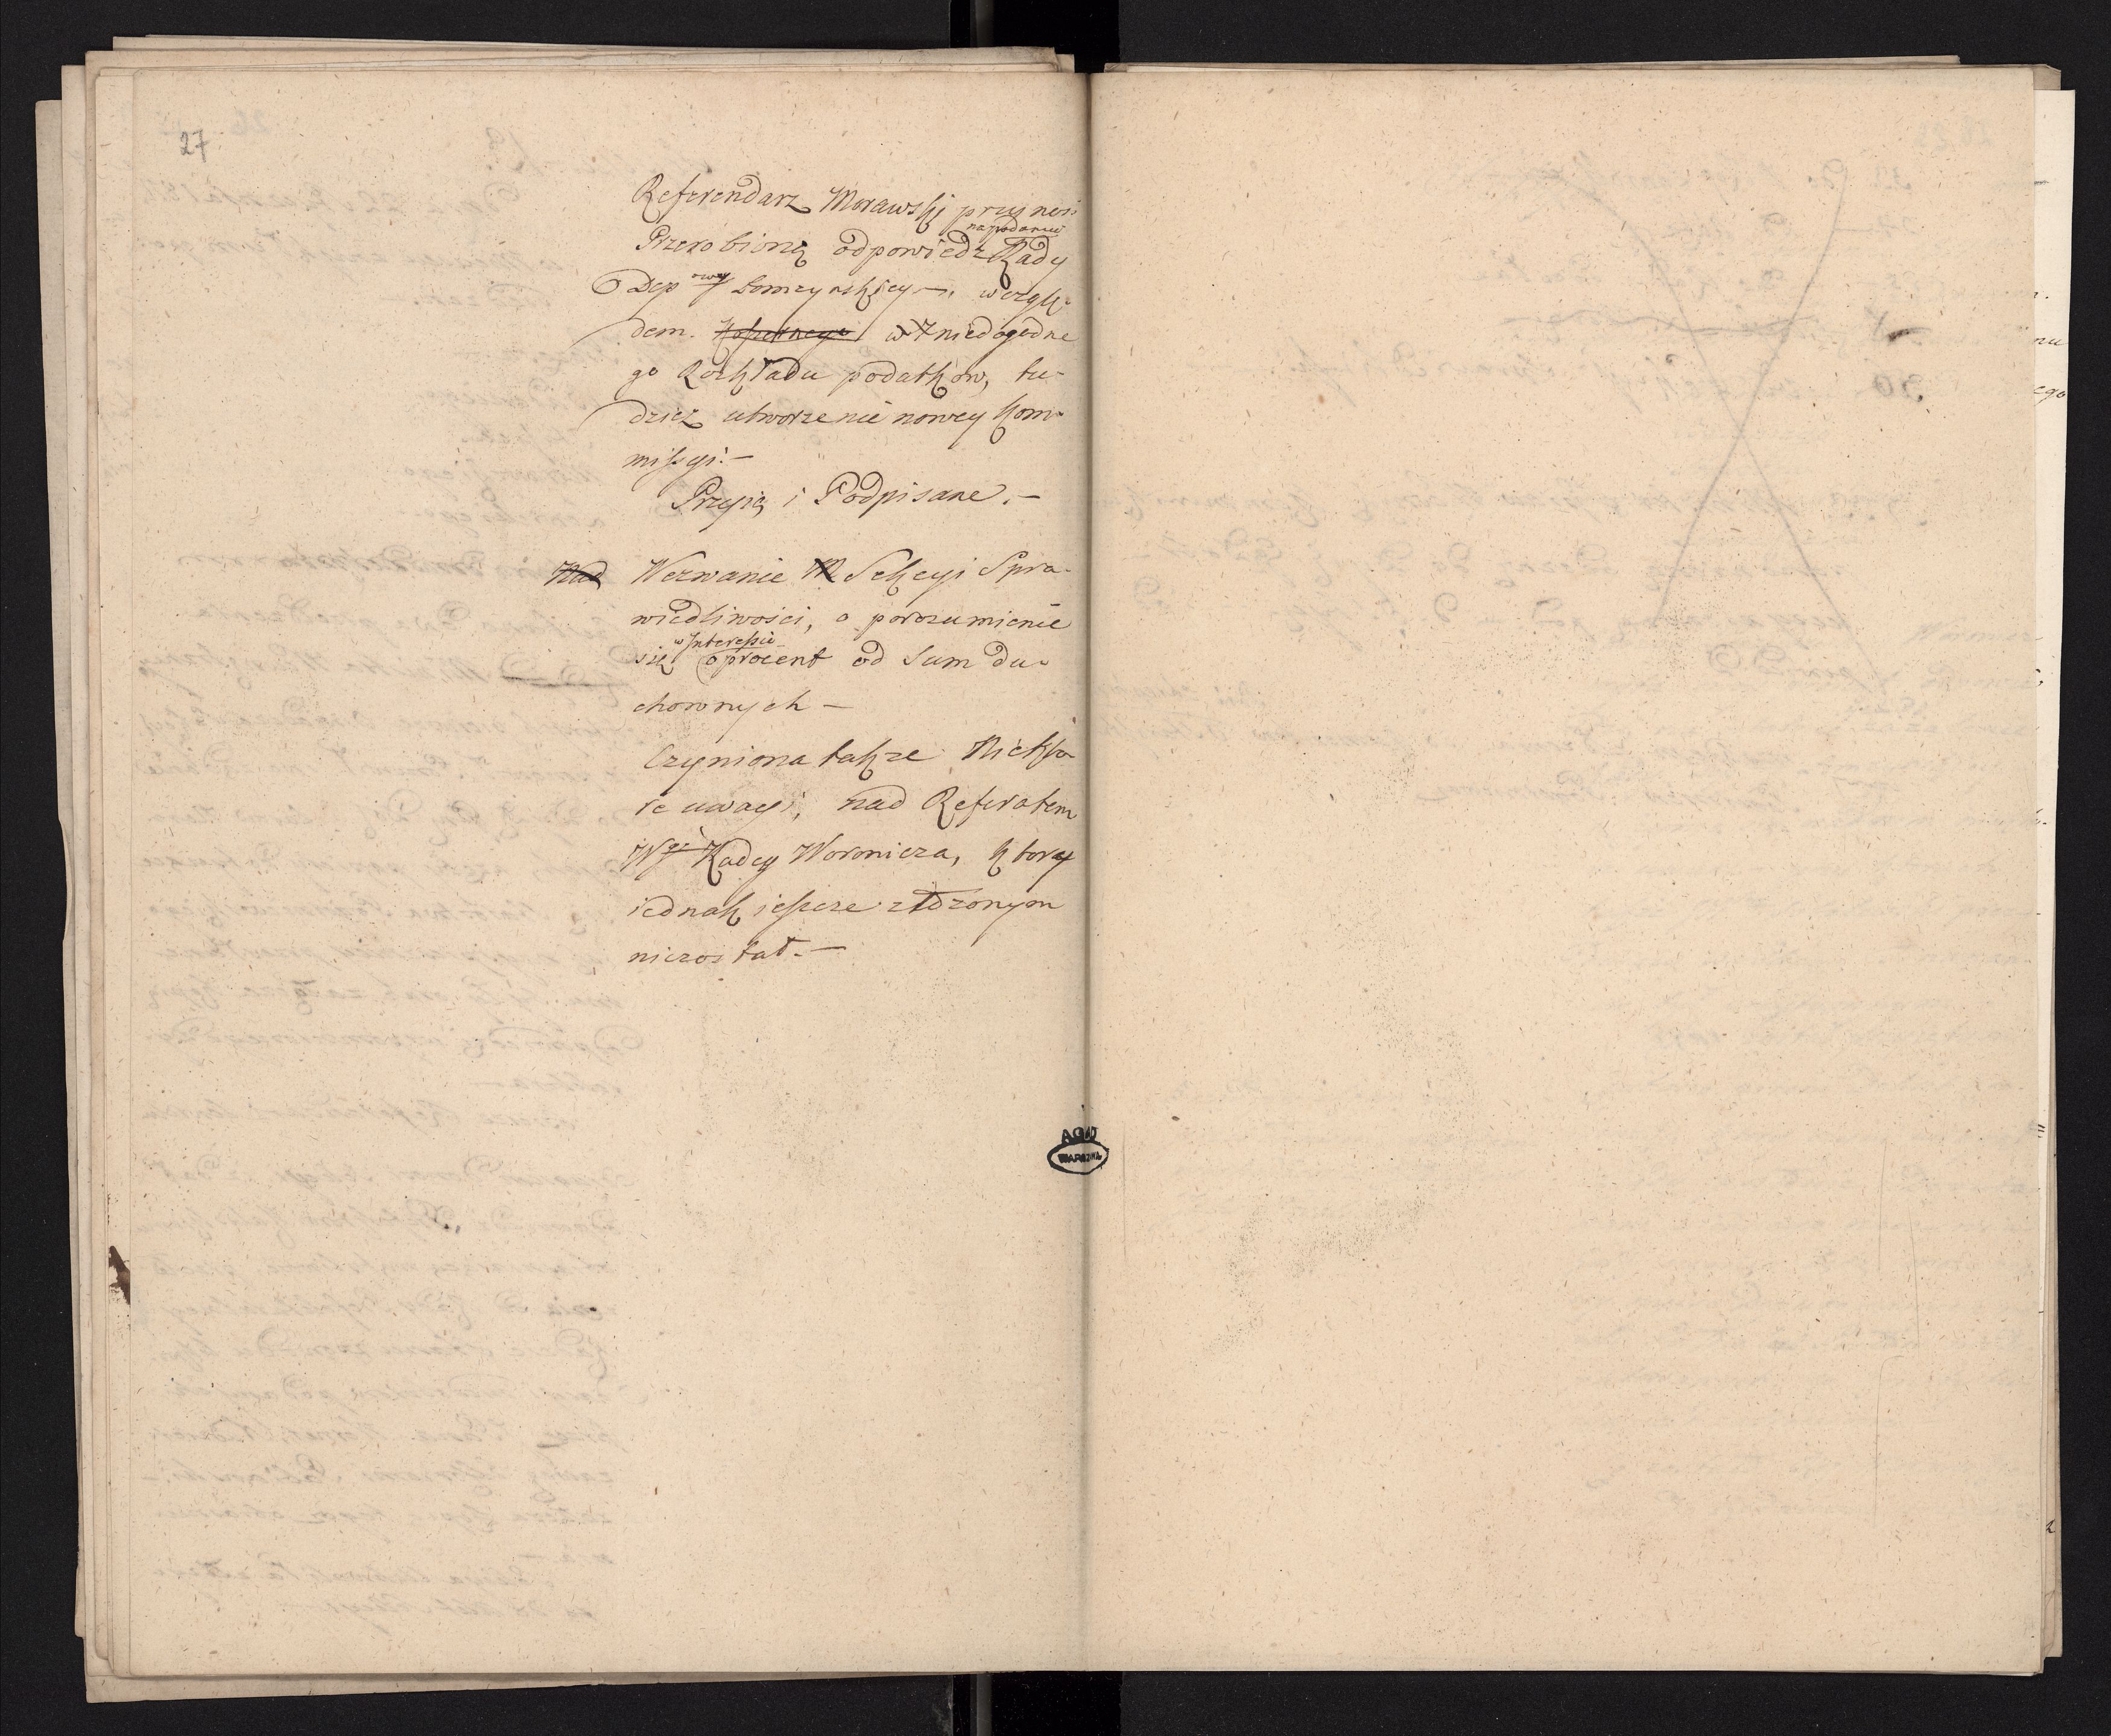 27
Referendarz Morawski przynosi
na podanie
Przerobioną odpowiedz Rady
Dep owey Łomzynskiey –, wzglę-
dem. niedogodne
go Rozkładu podatkow, tu-
dzież utworzenie nowey Kom-
missyi. –
Przyią i Podpisane. –
Nad Wezwanie Sekcyi Spra-
wiedliwości, o porozumienie
w Interessie
się o procent od Sum du-
chownych –
Czyniona także Niektó-
re uwagi, nad Referatem
Wgo Radcy Woronicza, ktory
iednak ieszcze złożonym
niezostał. –
AGAD
WARSZAWA